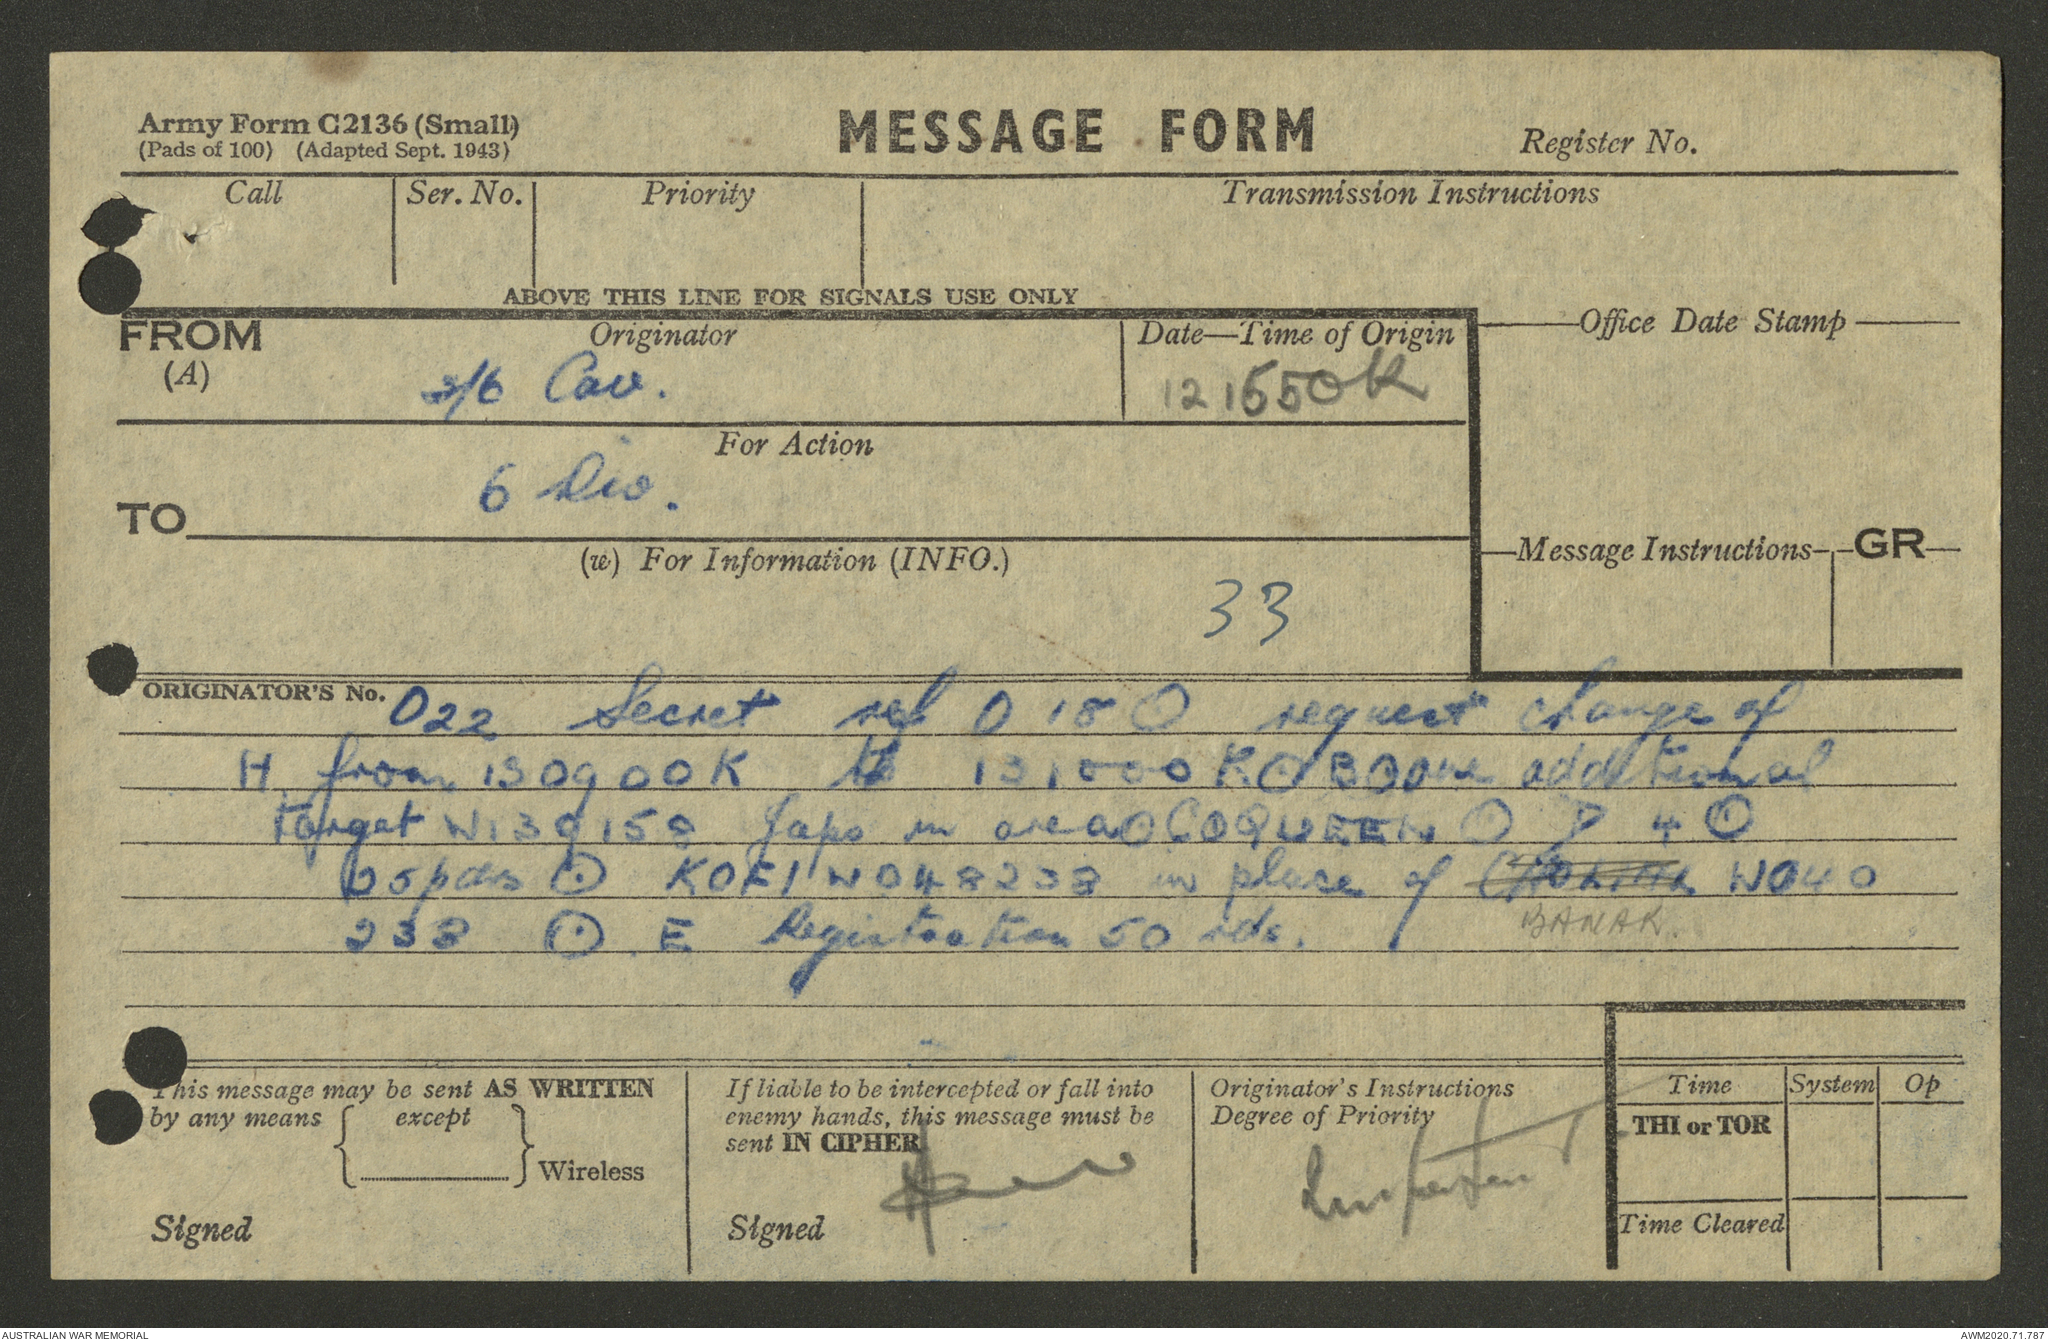 Army Form C2136 (Small)
(Pads of 100) (Adapted Sept. 1943)
MESSAGE FORM
Register No.
Call
Ser. No.
Priority
Transmission Instructions
ABOVE THIS LINE FOR SIGNALS USE ONLY
FROM
(A)
Originator
2/6 Cav.
Date—Time of Origin
121550K
Office Date Stamp
For Action
6 Div.
TO
(w) For Information (INFO.)
33
Message Instructions
GR
ORIGINATOR'S No.
O22 Secret ref O 180 request change of
H from 130900K to 131000K ⊙ B ⊙ one additional
target W139158 Japs in area ⊙ C ⊙ QUEEN ⊙ D 4 ⊙
25pdrs ⊙ KOFI W048238 in place of W040
BANAK.
238 ⊙ E Registration 50 rds.
This message may be sent AS WRITTEN
by any means except
Wireless
Signed
If liable to be intercepted or fall into
enemy hands, this message must be
sent IN CIPHER
Signed
Originator's Instructions
Degree of Priority
Important
Time
System
Op
THI or TOR
Time Cleared
AUSTRALIAN WAR MEMORIAL
AWM2020.71.787